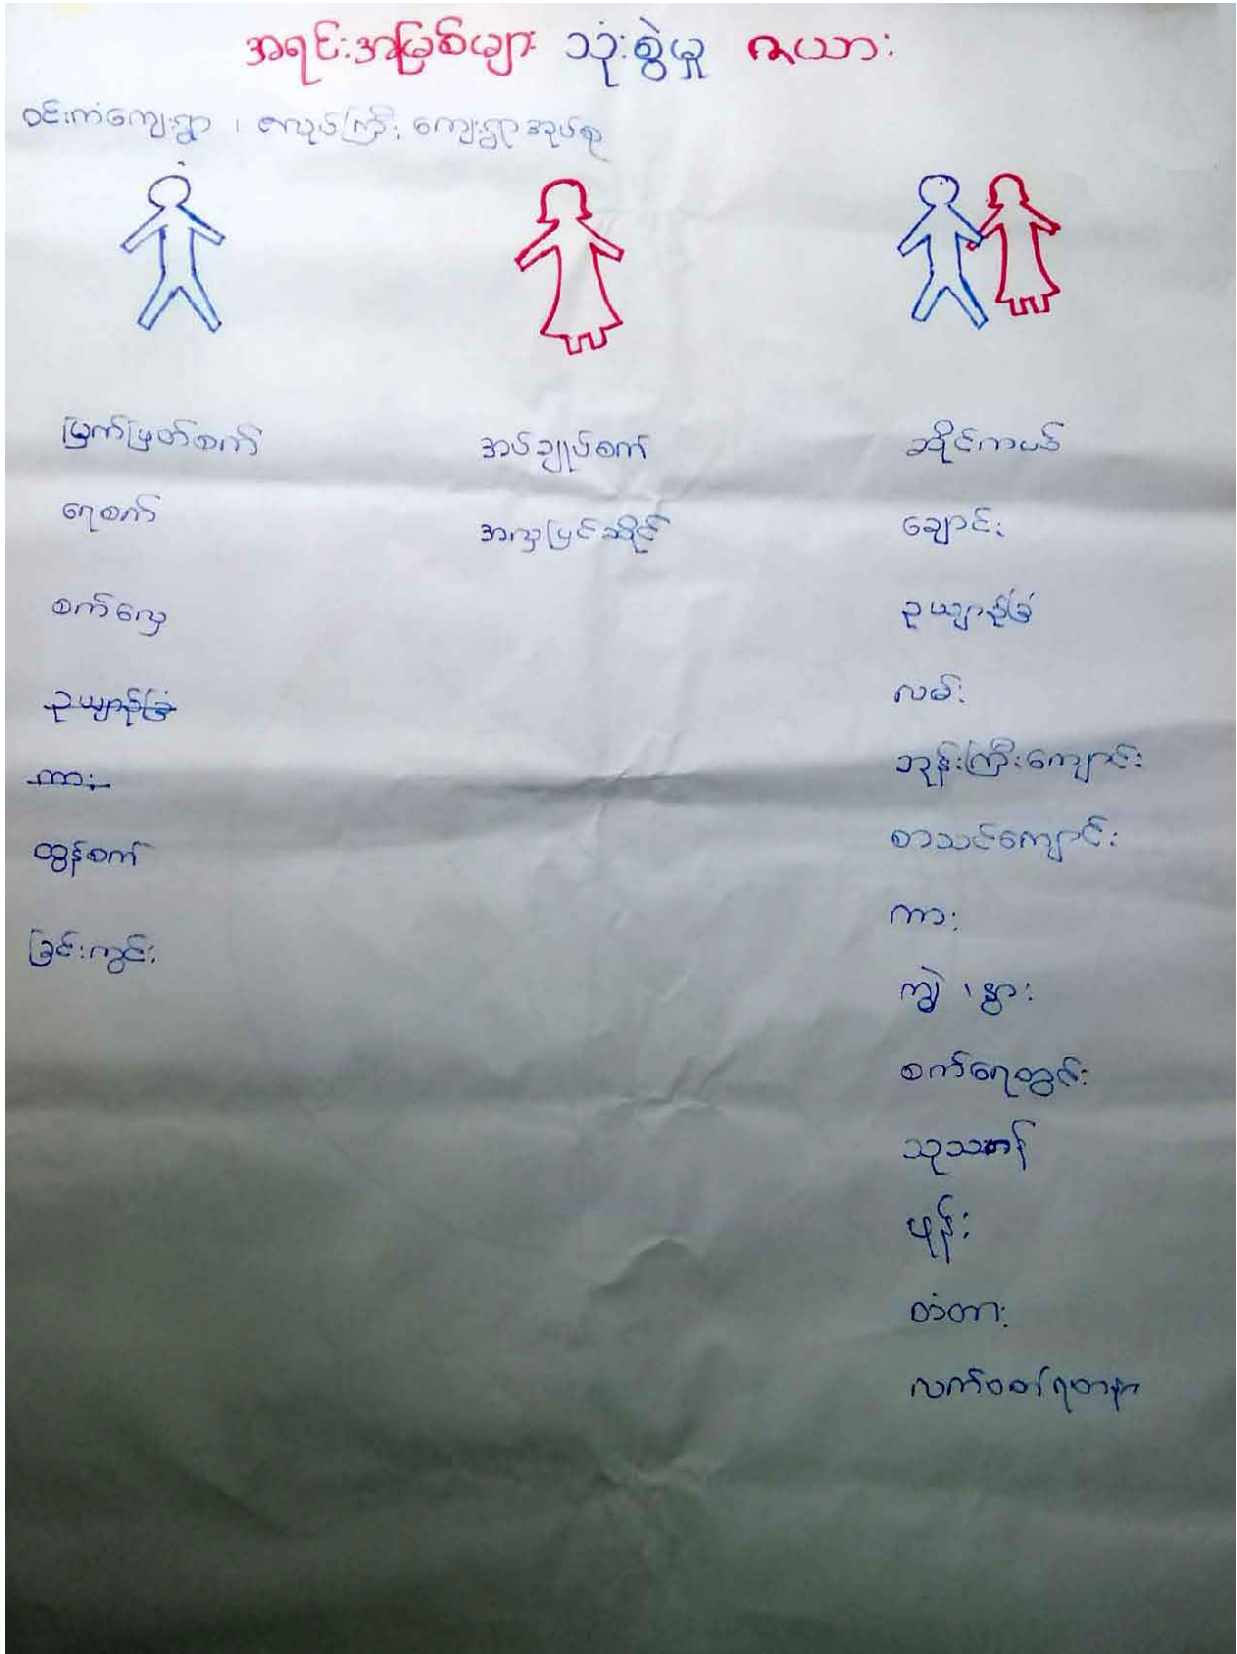 အရင်းအမြစ်များ သုံးစွဲမှု ဇယား
ဝင်းကံကျေးရွာ ၊ ဇလုပ်ကြီး ကျေးရွာအုပ်စု
မြက်ဖြတ်စက်
ရေစက်
စက်လှေ
ဥယျာဉ်ခြံ
ကား
ထွန်စက်
ခြင်းကွင်း
အပ်ချုပ်စက်
အလှပြင်ဆိုင်
ဆိုင်ကယ်
ချောင်း
ဥယျာဉ်ခြံ
လမ်း
ဘုန်းကြီးကျောင်း
စာသင်ကျောင်း
ကား
ကျွဲ ၊ နွား
စက်ရေတွင်း
သုသာန်
ဖုန်း
တံတား
လက်ဝတ်ရတနာ